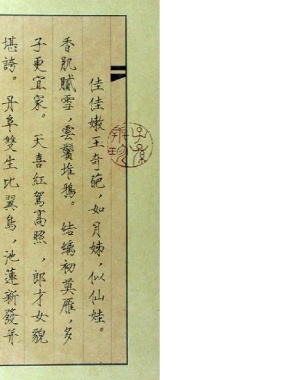 佳佳嫩玉奇葩，如月姊，似仙娃。
香肌膩雪，雲鬢堆鴉。結縭初奠雁，多
子更宜家。天喜紅鸞高照，郎才女貌
堪誇。丹阜雙生比翼鳥，池蓮新發并